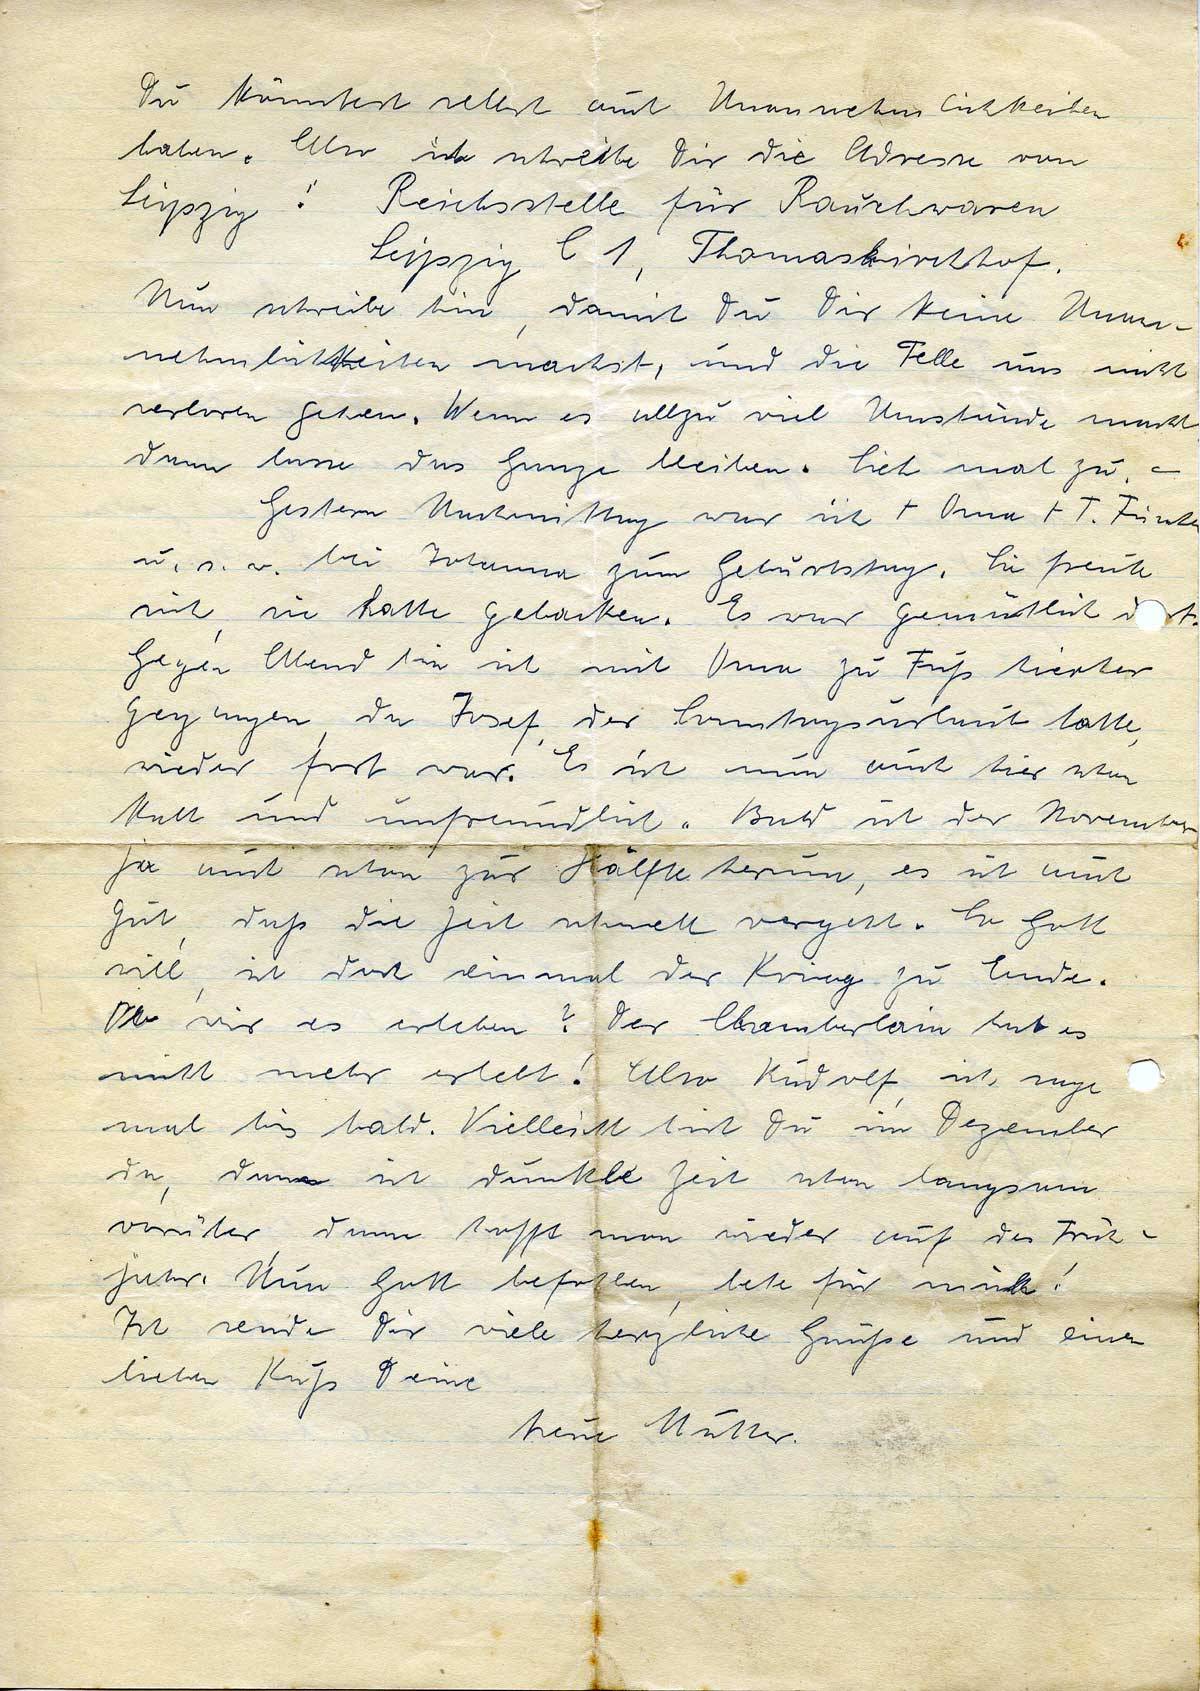 Du könntest selbst auch Unannehmlichkeiten
haben. Also ich schreibe Dir die Adresse von
Leipzig! Reichsstelle für Rauchwaren
Leipzig C 1, Thomaskirchhof.
Nun schreibe hin, damit Du Dir keine Unan-
nehmlichkeiten machst, und die Felle uns nicht
verloren gehen. Wenn es allzu viel Umstände macht
dann lasse das Ganze bleiben. Sieh mal zu. -
Gestern Nachmittag war ich + Oma + T.
u. s. w. bei Johanna zum Geburtstag. Sie freute
sich, sie hatte gebacken. Es war gemütlich dort.
Gegen Abend bin ich mit Oma zu Fuß hierher
gegangen, da Josef, der Sonntagsurlaub hatte,
wieder fort war. Es ist nun auch hier schon
kalt und unfreundlich. Bald ist der November
ja auch schon zur Hälfte herum, es ist auch
gut, daß die Zeit schnell vergeht. So Gott
will, ist doch einmal der Krieg zu Ende.
Ob wir es erleben? Der Chamberlain hat es
nicht mehr erlebt! Also Rudolf, ich sage
mal bis bald. Vielleicht bist Du im Dezember
da, dann ist dunkle Zeit schon langsam
vorüber dann hofft man wieder auf das Früh-
jahr. Nun Gott befohlen, bete für mich!
Ich sende Dir viele herzliche Grüße und einen
lieben Kuß Deine
treue Mutter.